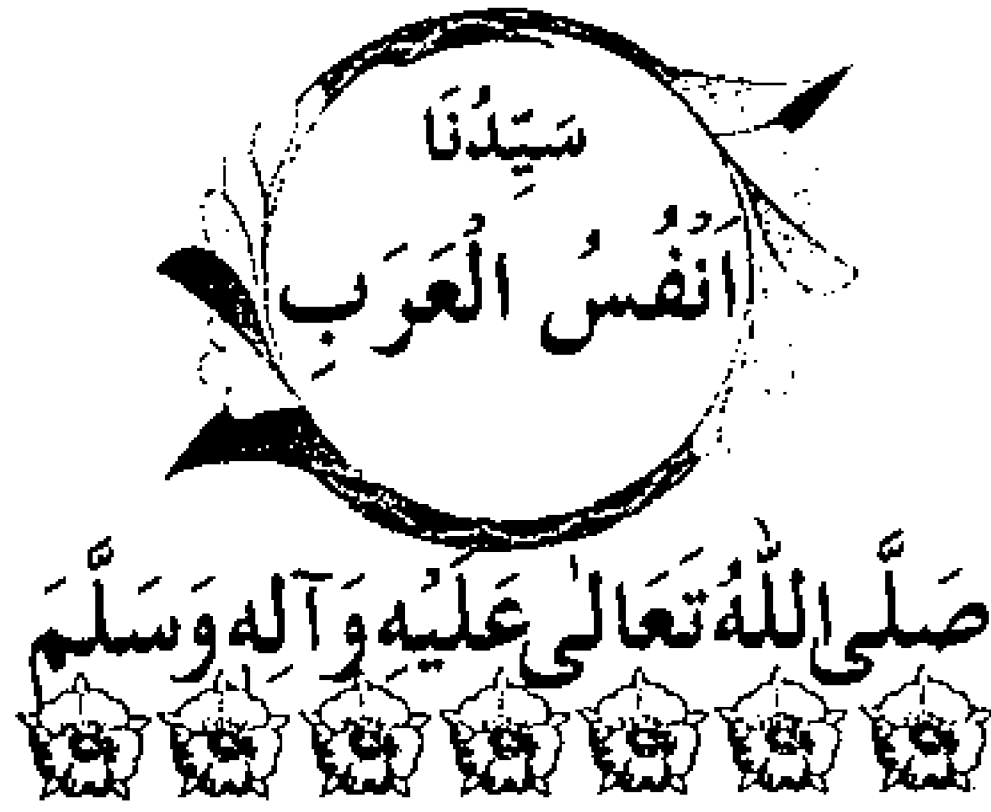 سَيِّدُنَا
اَنْفُسُ الْعَرَبِ
صَلَّى اللّٰهُ تَعَالٰى عَلَيْهِ وَآلِهٖ وَسَلَّمَ